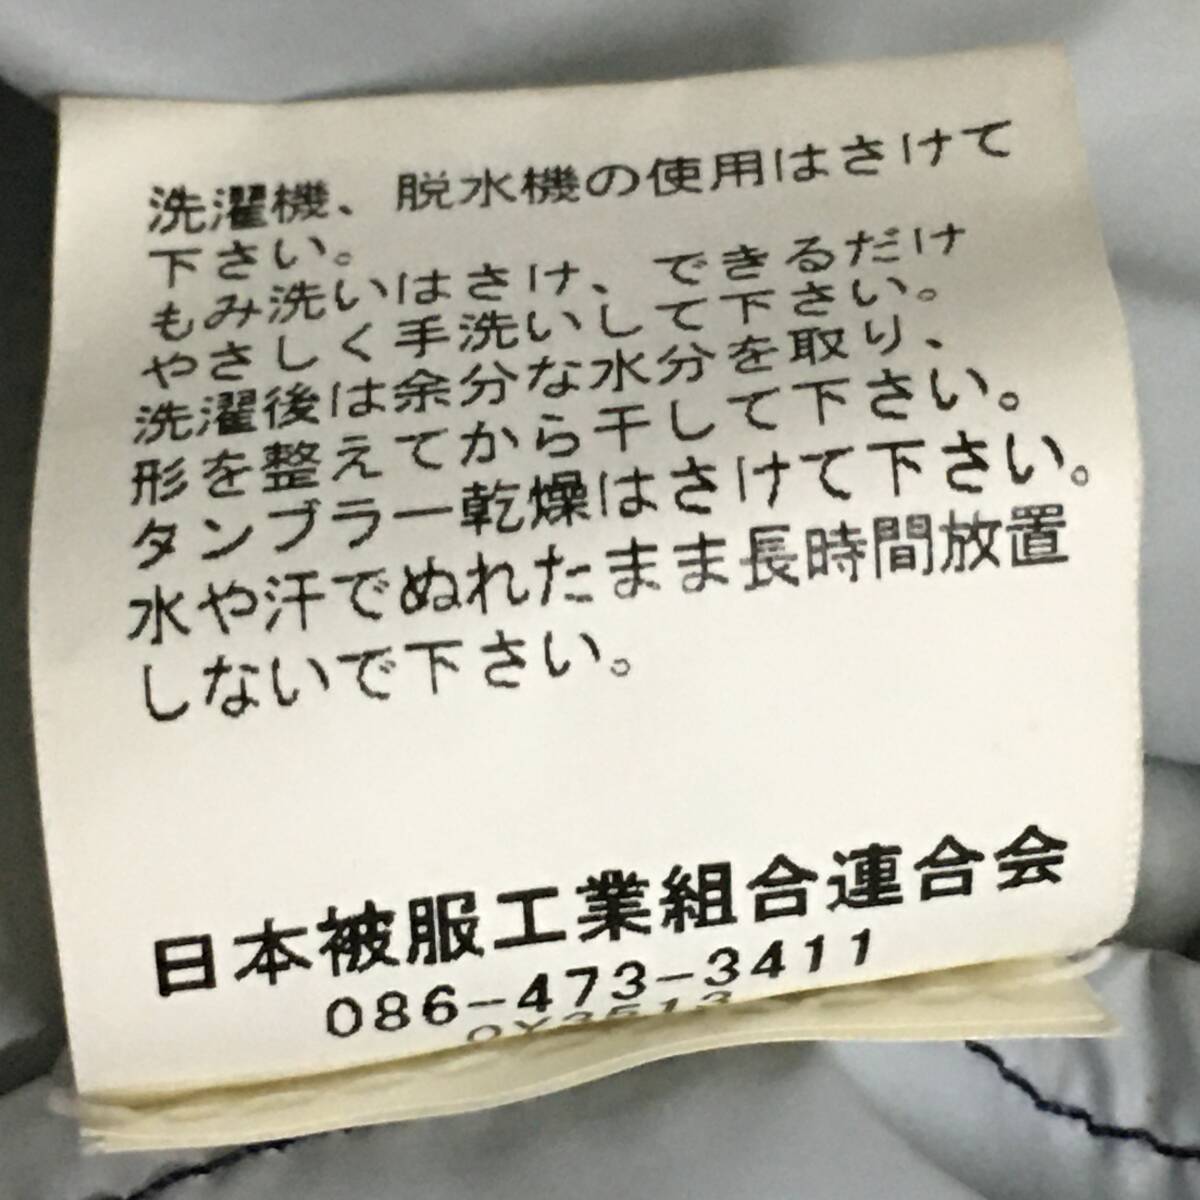 洗濯機、脱水機の使用はさけて
下さい。
もみ洗いはさけ、できるだけ
やさしく手洗いして下さい。
洗濯後は余分な水分を取り、
形を整えてから干して下さい。
タンブラー乾燥はさけて下さい。
水や汗でぬれたまま長時間放置
しないで下さい。
日本被服工業組合連合会
086-473-3411